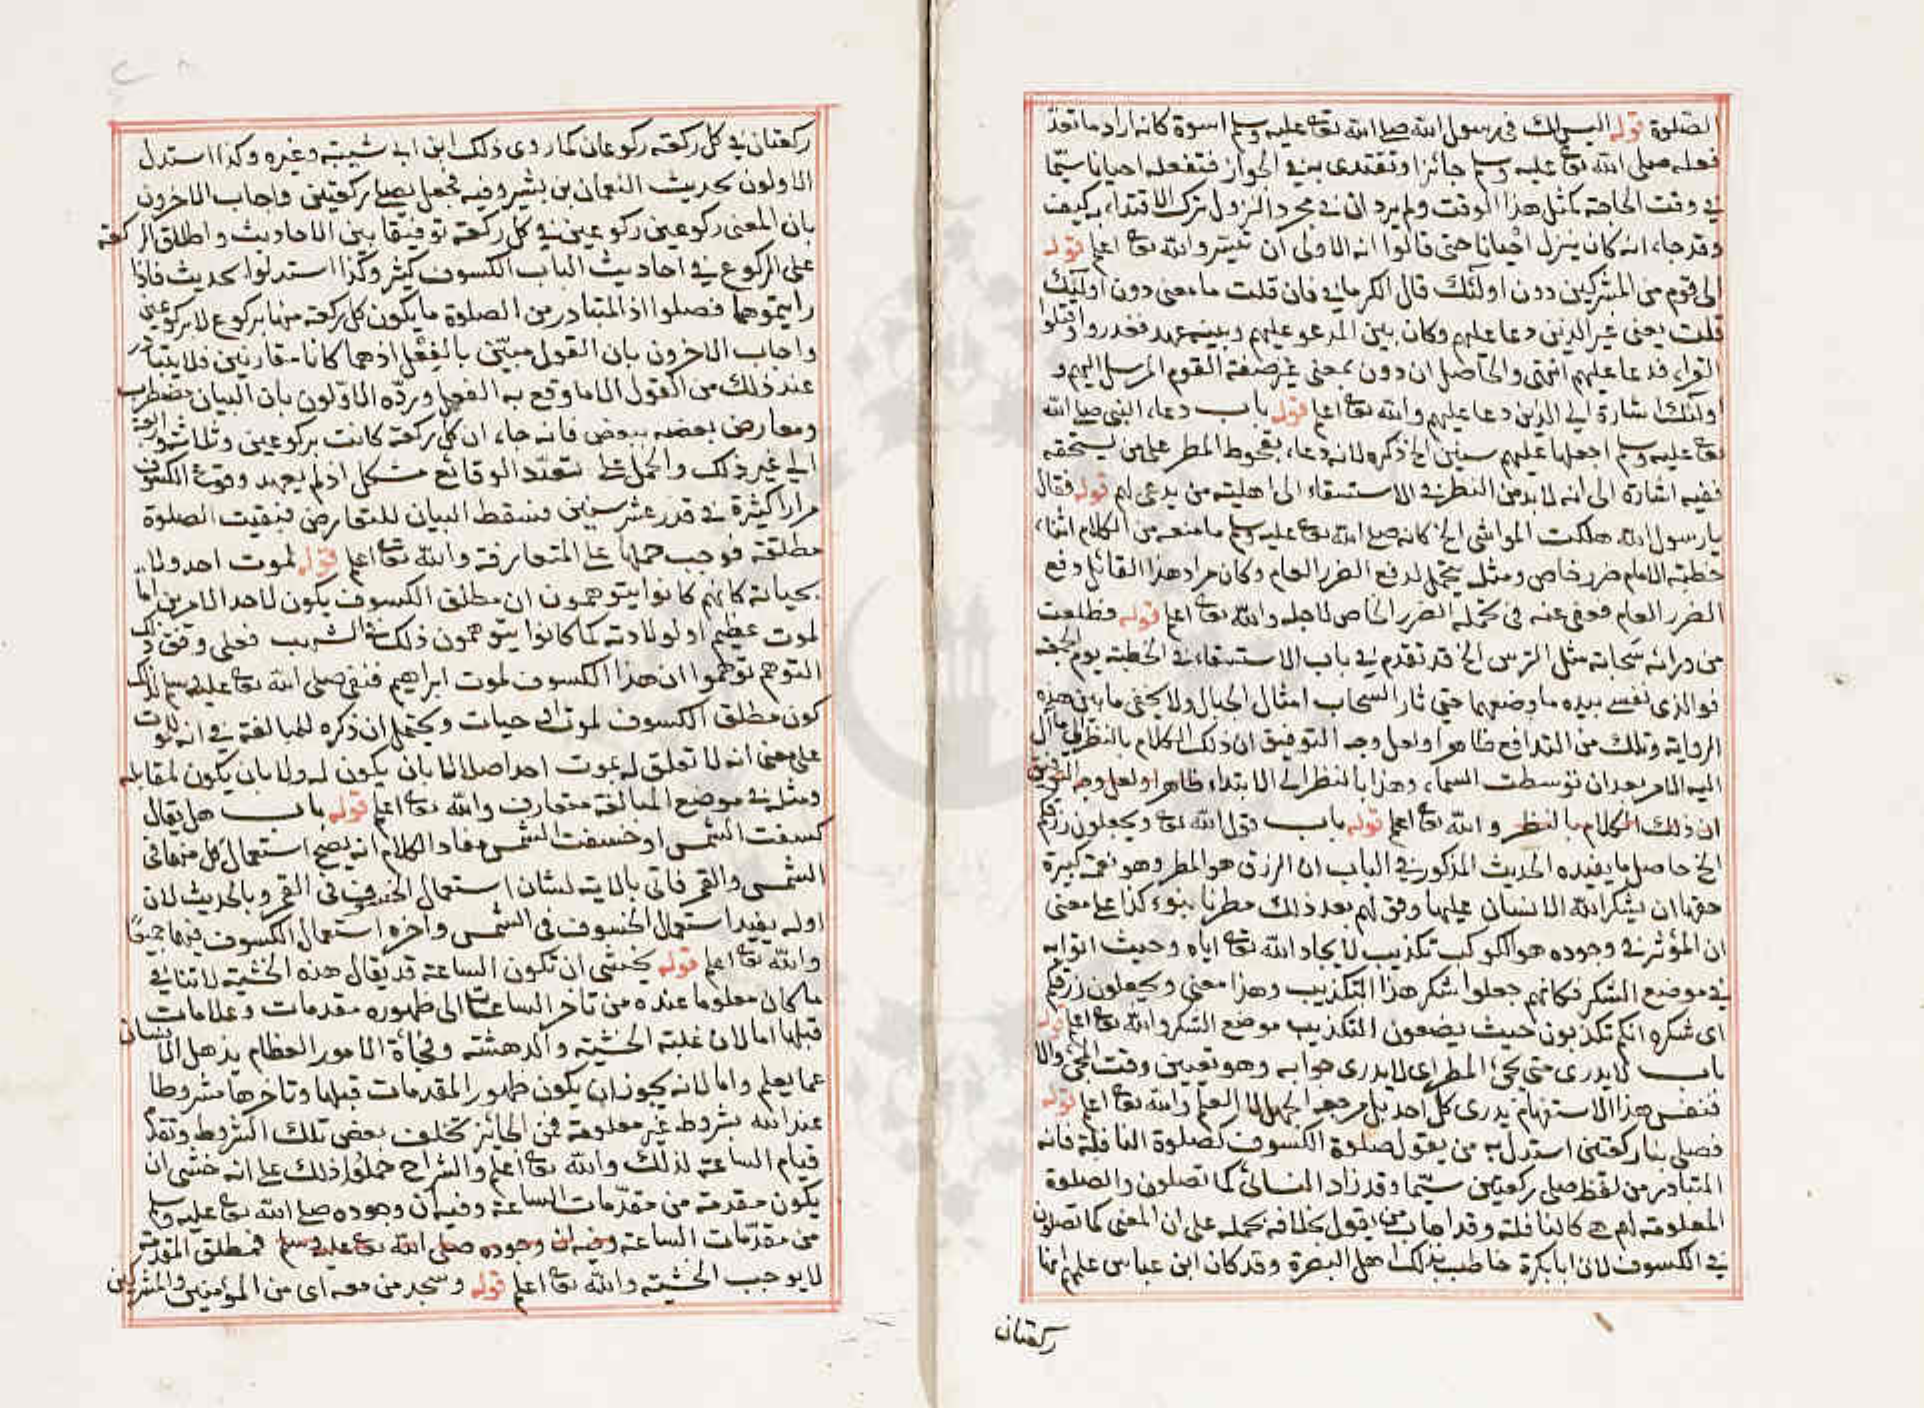 الصلوة قوله اليس لك في رسول الله صلى الله تعا عليه وسلم اسوة كانه اراد ما تعدّ
فعله صلى الله تعا عليه وسلم جائزا وتقتدى به في الجواز فتفعله احيانا سيّما
في وقت الحاجة كمثل هذا الوقت ولم يرد ان في مجرد النزول ترك الاقتداء به كيف
وقد جاء انه كان ينزل احيانا حتى قالوا ان الاولى ان والله تعا اعلم قوله
الى قوم من المشركين دون اولئك قال الكرماني فان قلت ما معنى دون اولئك
قلت يعنى غير الذين دعا عليهم وكان بين المدعو عليهم وبينه عهد فغدروا وقتلوا
القراء فدعا عليهم انتهى والحاصل ان دون بمعنى غير صفة القوم المرسل اليهم و
اولئك اشارة الى الذين دعا عليهم والله تعا اعلم قوله باب دعاء النبي صلى الله
تعا عليه وسلم اجعلها عليهم سنين الخ ذكره لانه دعاء بقحوط المطر على من يستحقه
ففيه اشارة الى انه لا بد من النظر في الاستسقاء الى اهلية من يدعى لهم قوله فقال
يارسول الله هلكت المواشى الخ كانه صلى الله تعا عليه وسلم ما منعه من الكلام اثناء
خطبة الامام ضرر خاص ومثله يتحمل لدفع الضرر العام وكان مراد هذا القائل دفع
الضرر العام فعفى عنه في تحمله الضرر الخاص لاجله والله تعا اعلم قوله فطلعت
من ورائه سحابة مثل الترس الخ قد تقدم في باب الاستسقاء في الخطبة يوم الجمعة
فوالذى نفسى بيده ما وضعهما حتى ثار السحاب امثال الجبال ولا يخفى ما بين هذه
الرواية وتلك من التدافع ظاهرا ولعل وجه التوفيق ان ذلك الكلام بالنظر الى ما آل
اليه الامر بعد ان توسطت السماء وهذا بالنظر الى الابتداء ظاهرا ولعل وجه التوفيق
ان ذلك الكلام بالنظر والله تعا اعلم قوله باب قول الله تعا ويجعلون رزقكم
الخ حاصل ما يفيده الحديث المذكور في الباب ان الرزق هو المطر وهو نعمة كبيرة
حقها ان يشكر الله الانسان عليها وقولهم بعد ذلك مطرنا بنوء كذا على معنى
ان المؤثر في وجوده هو الكوكب تكذيب لايجاد الله تعا اياه وحيث اتوا به
في موضع الشكر فكانهم جعلوا شكر هذا التكذيب وهذا معنى ويجعلون رزقكم
اى شكره انكم تكذبون حيث يضعون التكذيب موضع الشكر والله تعا اعلم قوله
باب لا يدرى متى يجئ المطر اى لا يدرى جوابه وهو تعيين وقت المجئ والا
فنفس هذا الاستفهام يدرى كل احد بل مرجعه الجهل لا العلم والله تعا اعلم قوله
فصلى بنا ركعتين استدل به من يقول صلوة الكسوف كصلوة النافلة فانه
المتبادر من لفظ صلى ركعتين سيّما وقد زاد النسائى كما تصلون والصلوة
المعلومة لهم هي كالنافلة وقد اجاب من يقول بخلافه بحمله على ان المعنى كما تصلون
في الكسوف لان ابابكرة خاطب بذلك اهل البصرة وقد كان ابن عباس علمهم انها
ركعتان
ركعتان في كل ركعة ركوعان كما روى ذلك ابن ابي شيبة وغيره وكذا استدل
الاولون بحديث النعمان بن بشير وفيه فجعل يصلى ركعتين واجاب الاخرون
بان المعنى ركوعين ركوعين في كل ركعة توفيقا بين الاحاديث واطلاق الركعة
على الركوع في احاديث الباب الكسوف كثير وكذا استدلوا بحديث فاذا
رايتموهما فصلوا اذ المتبادر من الصلوة ما يكون كل ركعة منها بركوع لا بركوعين
واجاب الاخرون بان القول مبيّن بالفعل اذهما كانا مقارنين ولا يتبادر
عند ذلك من القول الا ما وقع به الفعل وردّه الاوّلون بان البيان مضطرب
ومعارض بعضه ببعض فانه جاء ان كل ركعة كانت بركوعين وثلاثة واربعة
الى غير ذلك والحمل على تعدّد الوقائع مشكل اذ لم يعهد وقوع الكسوف
مرارا كثيرة في قدر عشر سنين فسقط البيان للتعارض فبقيت الصلوة
مطلقة فوجب حملها على المتعارفة والله تعا اعلم قوله لموت احد ولا
بحياته كانهم كانوا يتوهمون ان مطلق الكسوف يكون لاحد الامرين اما
لموت عظيم او لولادته كما كانوا يتوهمون ذلك في الشهب فعلى وفق ذلك
التوهم توهموا ان هذا الكسوف لموت ابراهيم فنفى صلى الله تعا عليه وسلم لذلك
كون مطلق الكسوف لموت او حيات ويحتمل ان ذكره للمبالغة في انه لموت
على معنى انه لا تعلق له بموت احد اصلا لا بان يكون له ولا بان يكون لمقابله
ومثله في موضع المبالغة متعارف والله تعا اعلم قوله باب هل يقال
كسفت الشمس او خسفت الشمس مفاد الكلام انه يصح استعمال كل منهما في
الشمس والقمر فاتى بالاية لبيان استعمال الخسوف في القمر وبالحديث لان
اوله يفيد استعمال الخسوف في الشمس واخره استعمال الكسوف فيهما جميعًا
والله تعا اعلم قوله يخشى ان تكون الساعة قد يقال هذه الخشية لا تنافي
ما كان معلوما عنده من تاخر الساعة الى ظهوره مقدمات وعلامات
قبلها اما لان غلبة الخشية والدهشة وفجأة الامور العظام يذهل الانسان
عما يعلم واما لانه يجوز ان يكون ظهور المقدمات قبلها وتاخرها مشروطا
عند الله بشروط غير معلومة فمن الجائز تخلف بعض تلك الشروط وتقدّم
قيام الساعة لذلك والله تعا اعلم والشراح حملوا ذلك على انه خشى ان
يكون مقدمة من مقدّمات الساعة وفيه ان وجوده صلى الله تعا عليه وسلم
من مقدّمات الساعة وفيه ان وجوده صلى الله تعا عليه وسلم فمطلق المقدمة
لا يوجب الخشية والله تعا اعلم قوله وسجد من معه اى من المؤمنين والمشركين